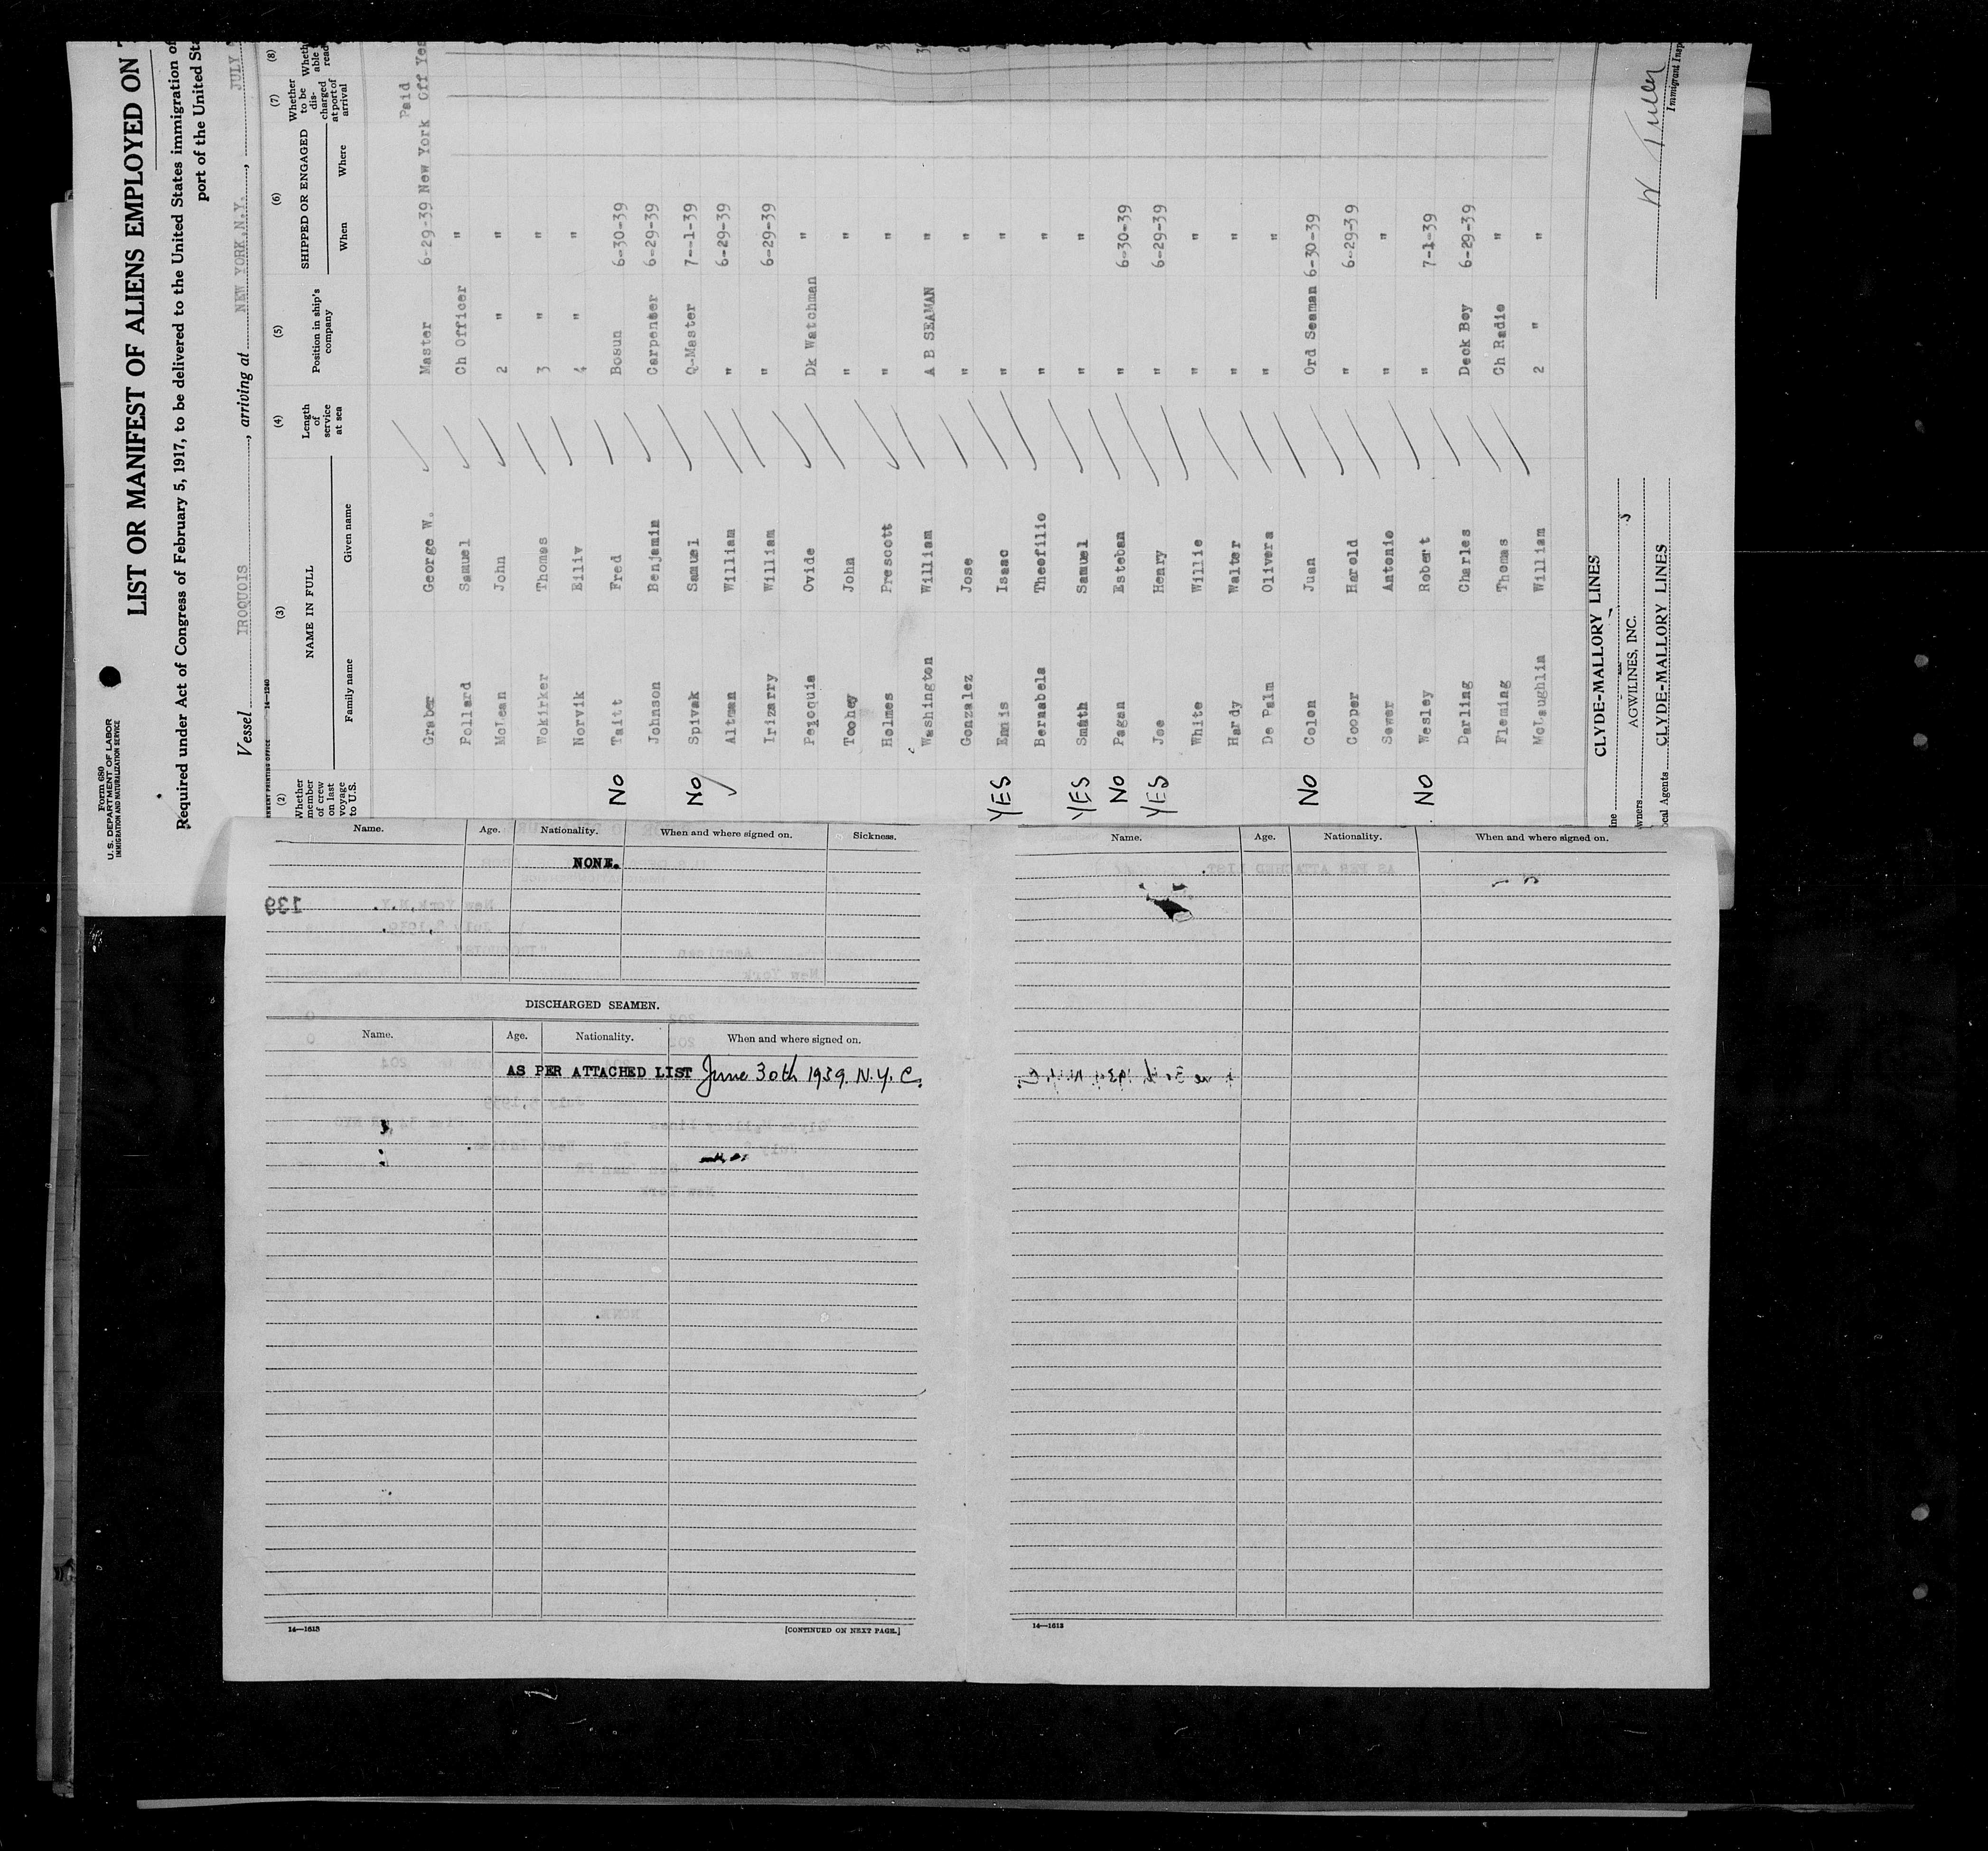 Form 680
U. S. DEPARTMENT OF LABOR
IMMIGRATION AND NATURALIZATION SERVICE
LIST OR MANIFEST OF ALIENS EMPLOYED ON
Required under Act of Congress of February 5, 1917, to be delivered to the United States immigration of
port of the United Sta
Vessel IROQUOIS, arriving at NEW YORK,N.Y., JULY
14—1240
(2) (3) (4) (5) (6) (7) (8)
Whether member of crew on last voyage to U.S. NAME IN FULL Length of service at sea Position in ship's company SHIPPED OR ENGAGED Whether to be discharged at port of arrival
Family name Given name When Where
Paid
Graber George W. Master 6-29-39 New York Off Yes
Pollard Samuel Ch Officer "
McLean John 2 " "
Wokirker Thomas 3 " "
Norvik Eiliv 4 " "
NO Taitt Fred Bosun 6-30-39
Johnson Benjamin Carpenter 6-29-39
NO Spivak Samuel Q-Master 7--1-39
Altman William " 6-29-39
Irizarry William " 6-29-39
Ovide Dk Watchman "
Toohey John " "
Holmes Prescott " "
Washington William A B SEAMAN "
Gonzalez Jose " "
YES Ennis Isaac " "
Bernabela Theofilio " "
YES Smith Samuel " "
NO Pagan Esteban " 6-30-39
YES Joe Henry " 6-29-39
White Willie " "
Hardy Walter " "
De Palm Olivera " "
NO Colon Juan Ord Seaman 6-30-39
Cooper Harold " 6-29-39
Sewer Antonio " "
NO Wesley Robert " 7-1-39
Darling Charles Deck Boy 6-29-39
Fleming Thomas Ch Radio "
McLaughlin William 2 " "
CLYDE-MALLORY LINES
ine
wners AGWILINES, INC.
ocal Agents CLYDE-MALLORY LINES
Immigrant Insp
Name. Age. Nationality. When and where signed on. Sickness.
NONE.
139
DISCHARGED SEAMEN.
Name. Age. Nationality. When and where signed on.
AS PER ATTACHED LIST June 30th 1939. N.Y. C.
14—1613
[CONTINUED ON NEXT PAGE.]
Name. Age. Nationality. When and where signed on.
14—1613